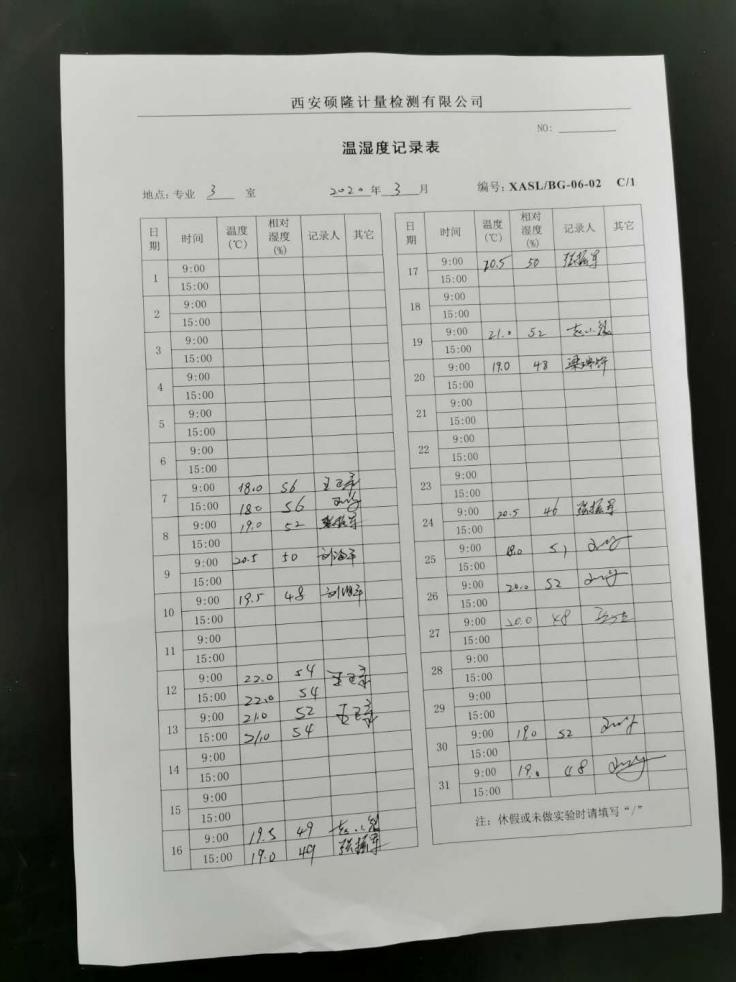 西安硕隆计量检测有限公司
NO:
温湿度记录表
地点: 专业 3 室 2020 年 3 月 编号: XASL/BG-06-02 C/1
日期 时间 温度(℃) 相对湿度(%) 记录人 其它
1 9:00
15:00
2 9:00
15:00
3 9:00
15:00
4 9:00
15:00
5 9:00
15:00
6 9:00
15:00
7 9:00 18.0 56
15:00 18.0 56
8 9:00 19.0 52 张振军
15:00
9 9:00 20.5 50
15:00
10 9:00 19.5 48
15:00
11 9:00
15:00
12 9:00 22.0 54
15:00 22.0 54
13 9:00 21.0 52
15:00 21.0 54
14 9:00
15:00
15 9:00
15:00
16 9:00 19.5 49
15:00 19.0 49 张振军
日期 时间 温度(℃) 相对湿度(%) 记录人 其它
17 9:00 20.5 50 张振军
15:00
18 9:00
15:00
19 9:00 21.0 52
15:00
20 9:00 19.0 48
15:00
21 9:00
15:00
22 9:00
15:00
23 9:00
15:00
24 9:00 20.5 46 张振军
15:00
25 9:00 18.0 51
15:00
26 9:00 20.0 52
15:00
27 9:00 20.0 48
15:00
28 9:00
15:00
29 9:00
15:00
30 9:00 19.0 52
15:00
31 9:00 19.0 48
15:00
注: 休假或未做实验时请填写“/”